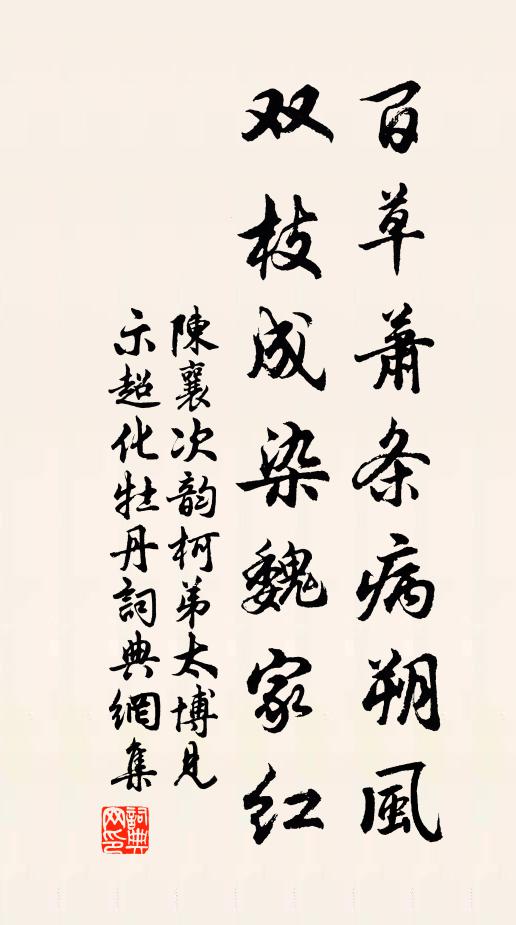 百草萧条病朔風
双枝成染魏家红
陳襄次韵柯弟太博見
示超化牡丹詞典網集
詞典网印